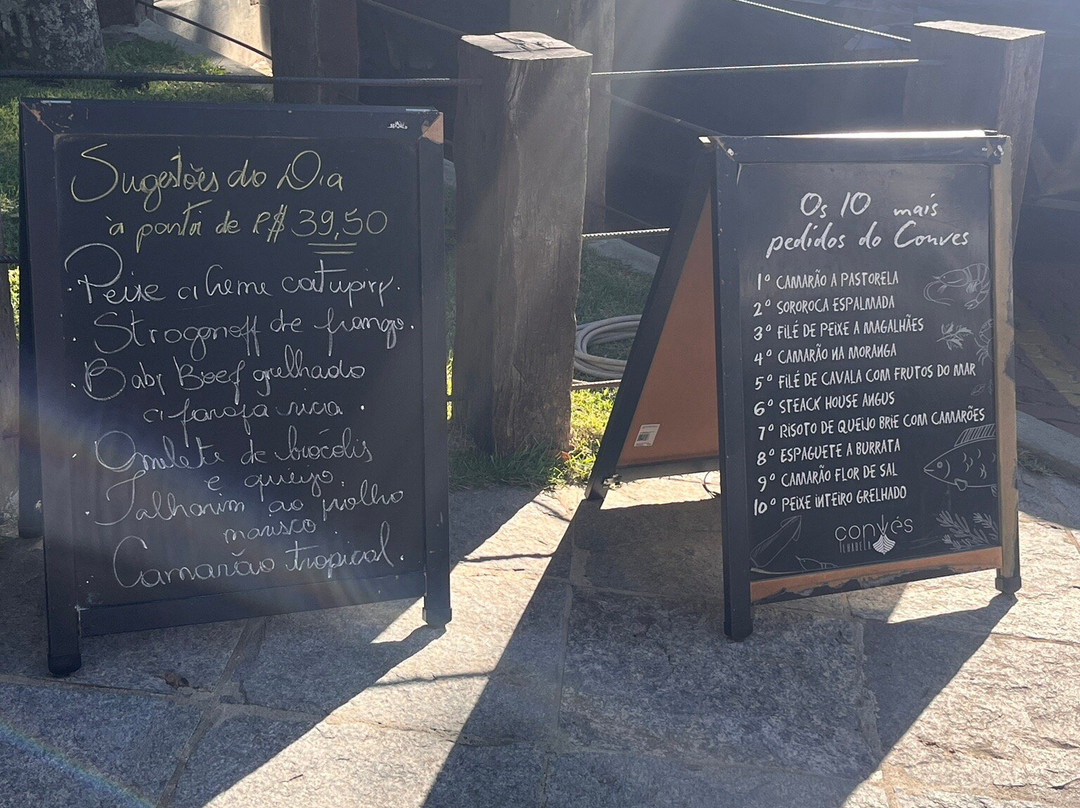 Sugestões do Dia
à partir de R$ 39,50
Peixe a creme catupiry.
. Strogonoff de frango.
. Baby Beef grelhado
a farofa rica.
. Omelete de brócolis
e queijo.
. Talharim ao molho
marisco
. Camarão tropical.
Os 10 mais
pedidos do Conves
1º CAMARÃO A PASTORELA
2º SOROROCA ESPALMADA
3º FILÉ DE PEIXE A MAGALHÃES
4º CAMARÃO NA MORANGA
5º FILÉ DE CAVALA COM FRUTOS DO MAR
6º STEACK HOUSE ANGUS
7º RISOTO DE QUEIJO BRIE COM CAMARÕES
8º ESPAGUETE A BURRATA
9º CAMARÃO FLOR DE SAL
10º PEIXE INTEIRO GRELHADO
convés
ILHABELA